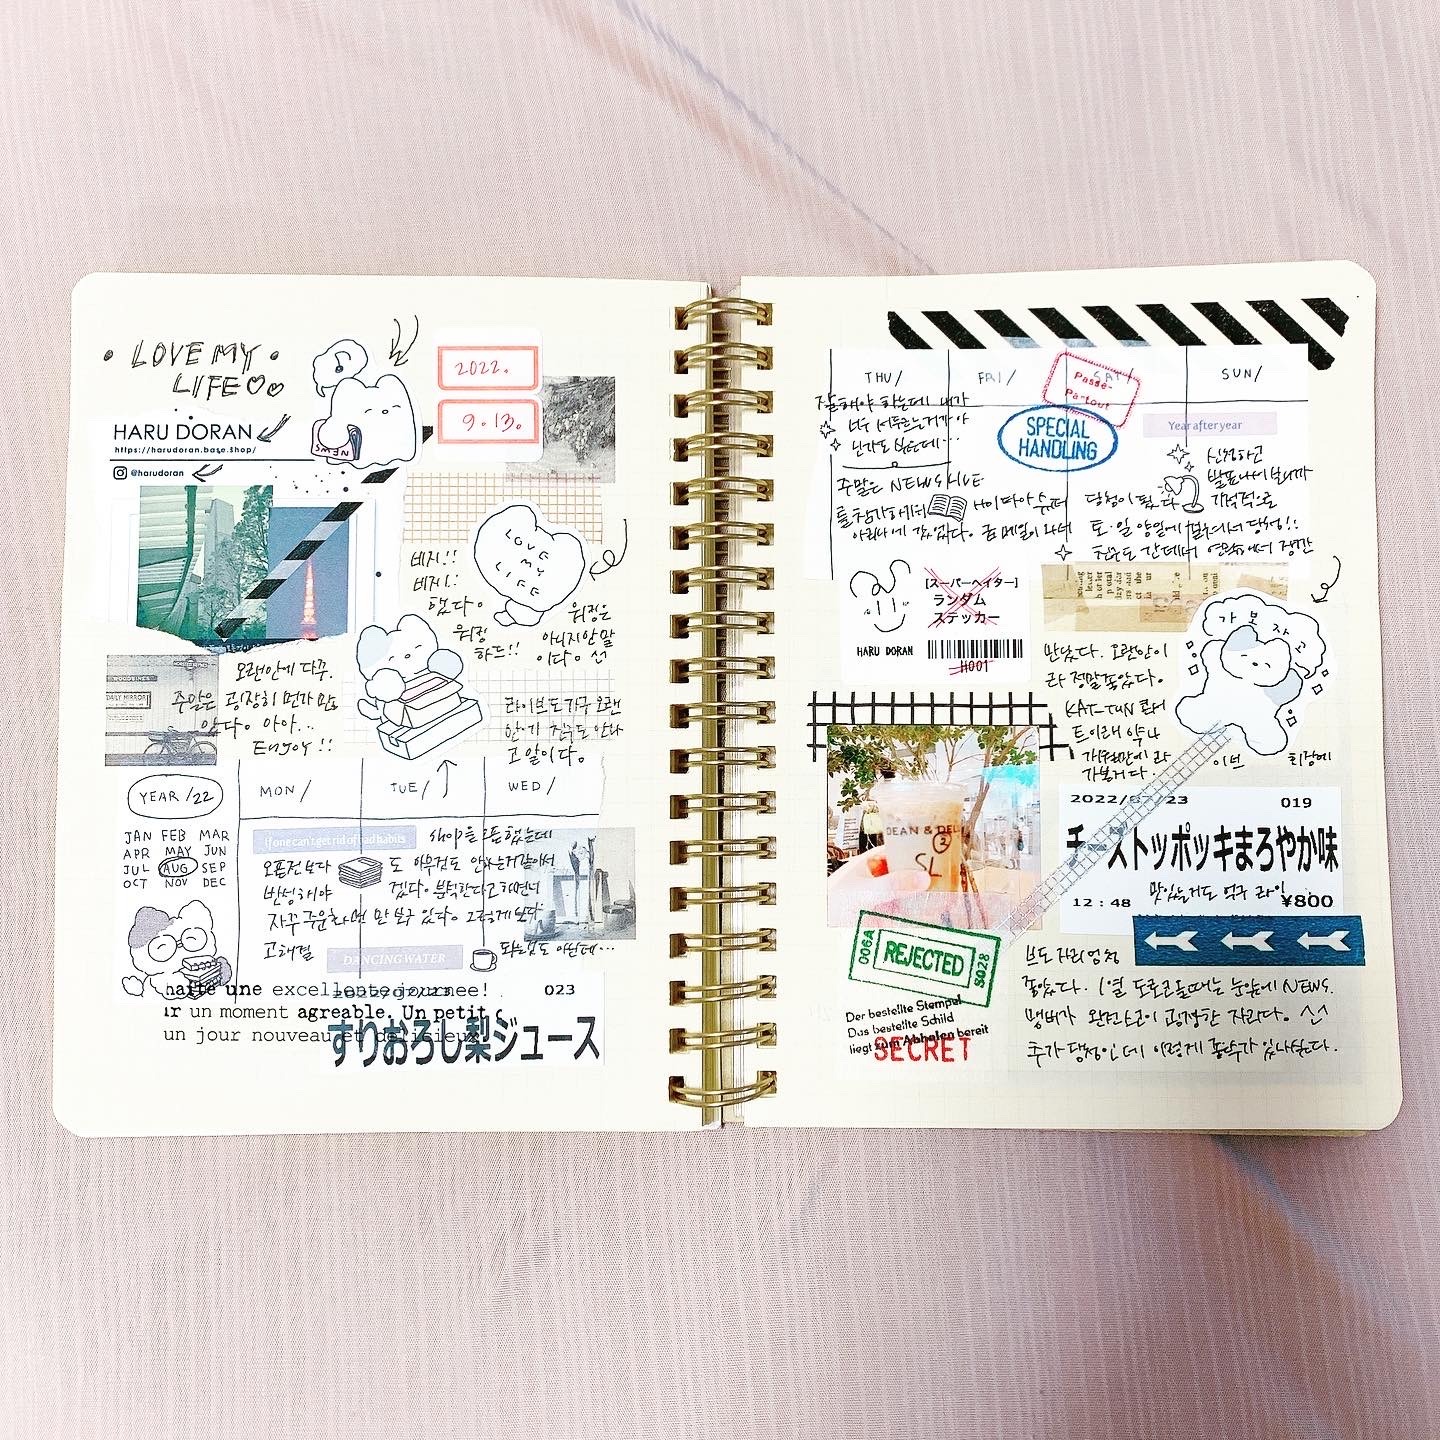 • LOVE MY •
LIFE♡♡
HARU DORAN
https://harudoran.base.shop/
@harudoran
♪
NEWS
2022.
9.13.
LOVE
MY
LIFE
비지!!
비지!!
했다。
워킹
하드!!
워킹은
아니지만 말
이다。
오랜만에 다꾸.
주말은 굉장히 뭔가 많
았다。아아...
Enjoy!!
DAILY MIRROR
라이브도 가구 오랜
만에 친구도 만나
고 말이다。
YEAR /22
MON /
TUE /
WED /
JAN FEB MAR
APR MAY JUN
JUL AUG SEP
OCT NOV DEC
If one can't get rid of bad habits
오픈전보다
도 아무것도 안하는거같아서
반성해야
겠다。분석한다고 하면서
자꾸 구운하면 만 보구 있다。그렇게
고해결
DANCING WATER
되는것도 아닌데...
haite une excellente journee!
ir un moment agreable. Un petit
un jour nouveau et delicieux
2022/07/23
023
すりおろし梨ジュース
THU /
FRI /
SAT /
SUN /
Passe-
Partout
SPECIAL
HANDLING
Year after year
잘해야 하는데 내가
너무 서두르는거가 아
닌가도 싶은데...
주말은 NEWS LIVE
를 참가하게되 사이타마 슈퍼
아리나에 갔었다。
당첨이 됬다
신청하고
발표나서 보니까
기적적으로
토·일 양일에 걸쳐서 당첨!!
친구도 간대서 연락해서 잠깐
[スーパーヘイター]
ランダム
ステッカー
HARU DORAN
H001
가보자고
만났다。오랜만이
라 정말좋았다。
KAT-TUN 콘서
트이래 약 4
가볼거다.
이브
회장에
DEAN & DELUCA
②
SL
2022/07/23
019
チーストッポッキまろやか味
12:48
맛있는거도 먹구 라이
¥800
브도 자리 엄청
좋았다。1열 도로코올때는 눈앞에 NEWS.
멤버가 완전보이 굉장한 자리다。
추가당첨인데 이렇게 좋을수가 있나싶다.
006A
REJECTED
S028
Der bestellte Stempel
Das bestellte Schild
liegt zum Abholen bereit
SECRET